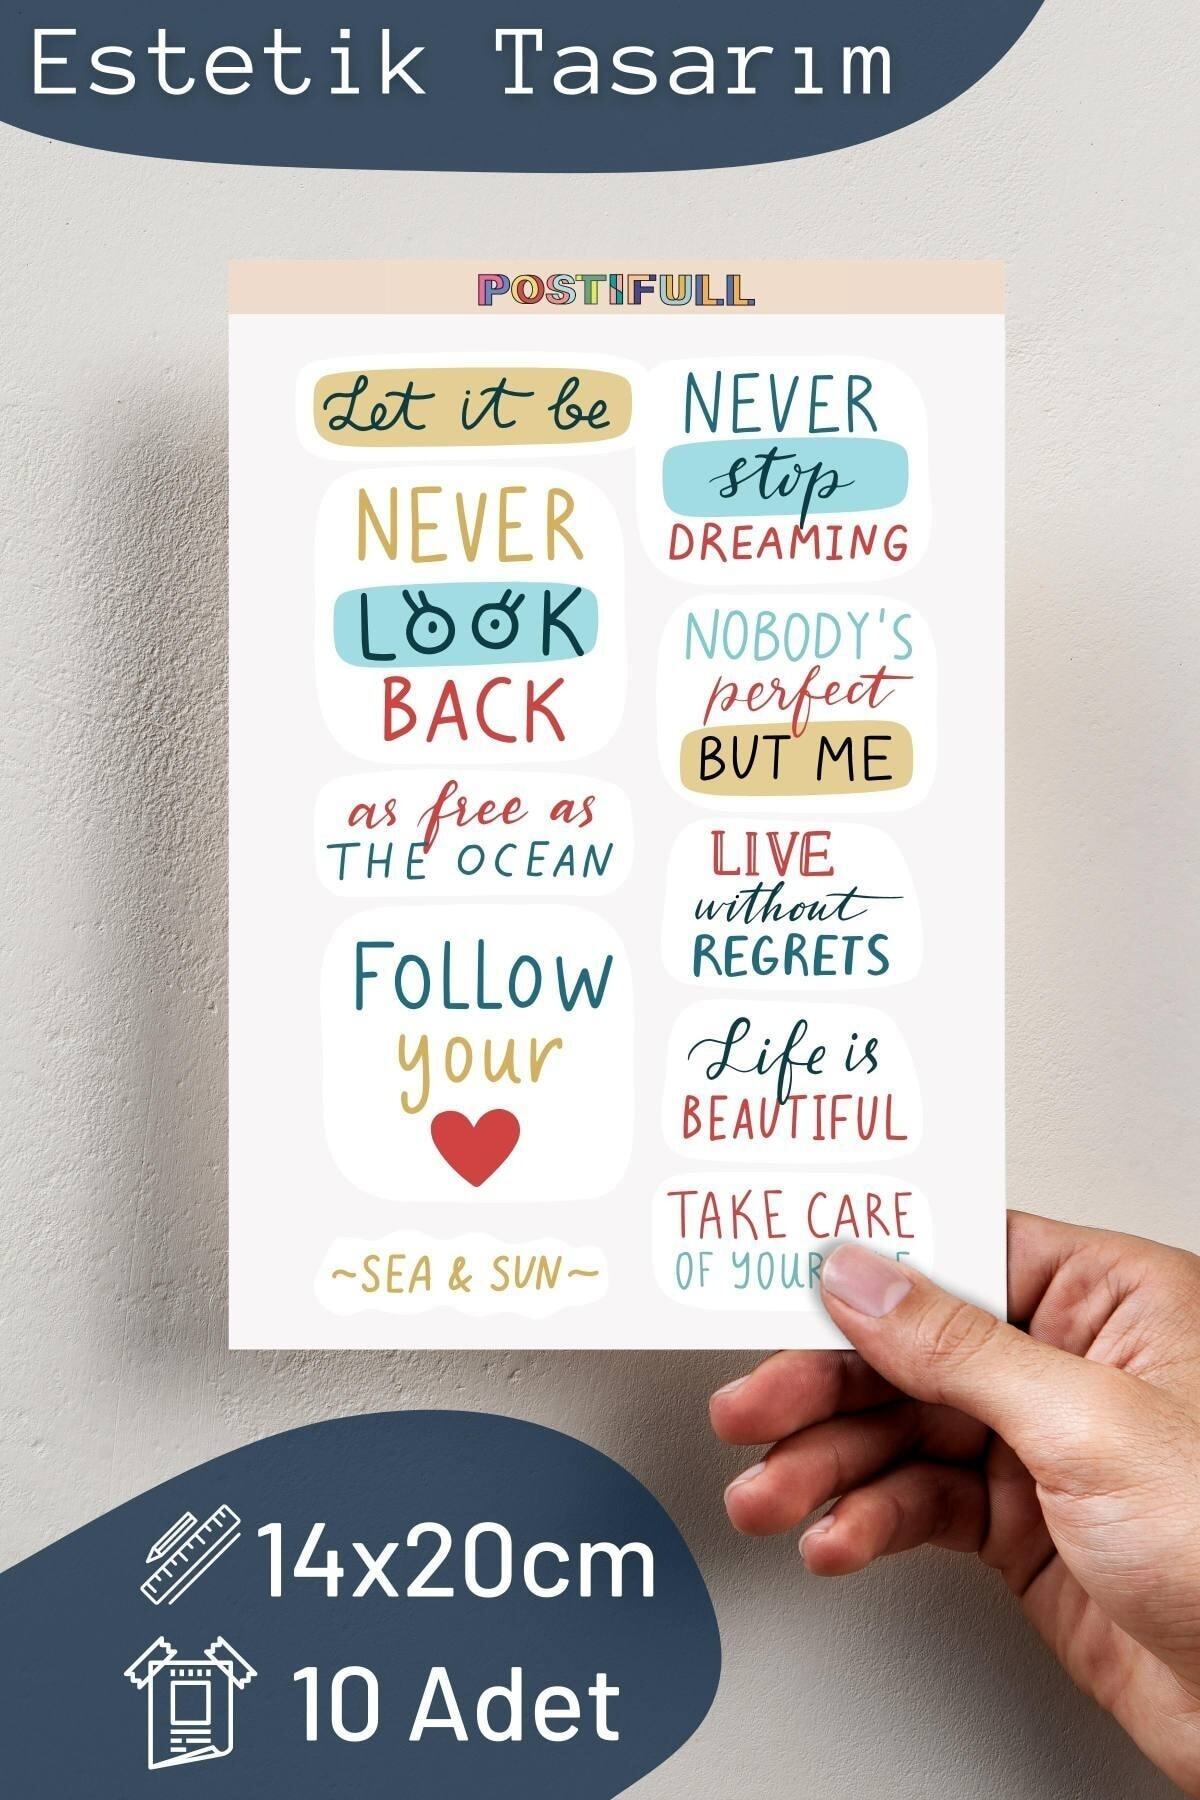 Estetik Tasarım
POSTIFULL
Let it be
NEVER
LOOK
BACK
as free as
THE OCEAN
FOLLOW
your
~SEA & SUN~
NEVER
stop
DREAMING
NOBODY'S
perfect
BUT ME
LIVE
without
REGRETS
Life is
BEAUTIFUL
TAKE CARE
OF
14x20cm
10 Adet